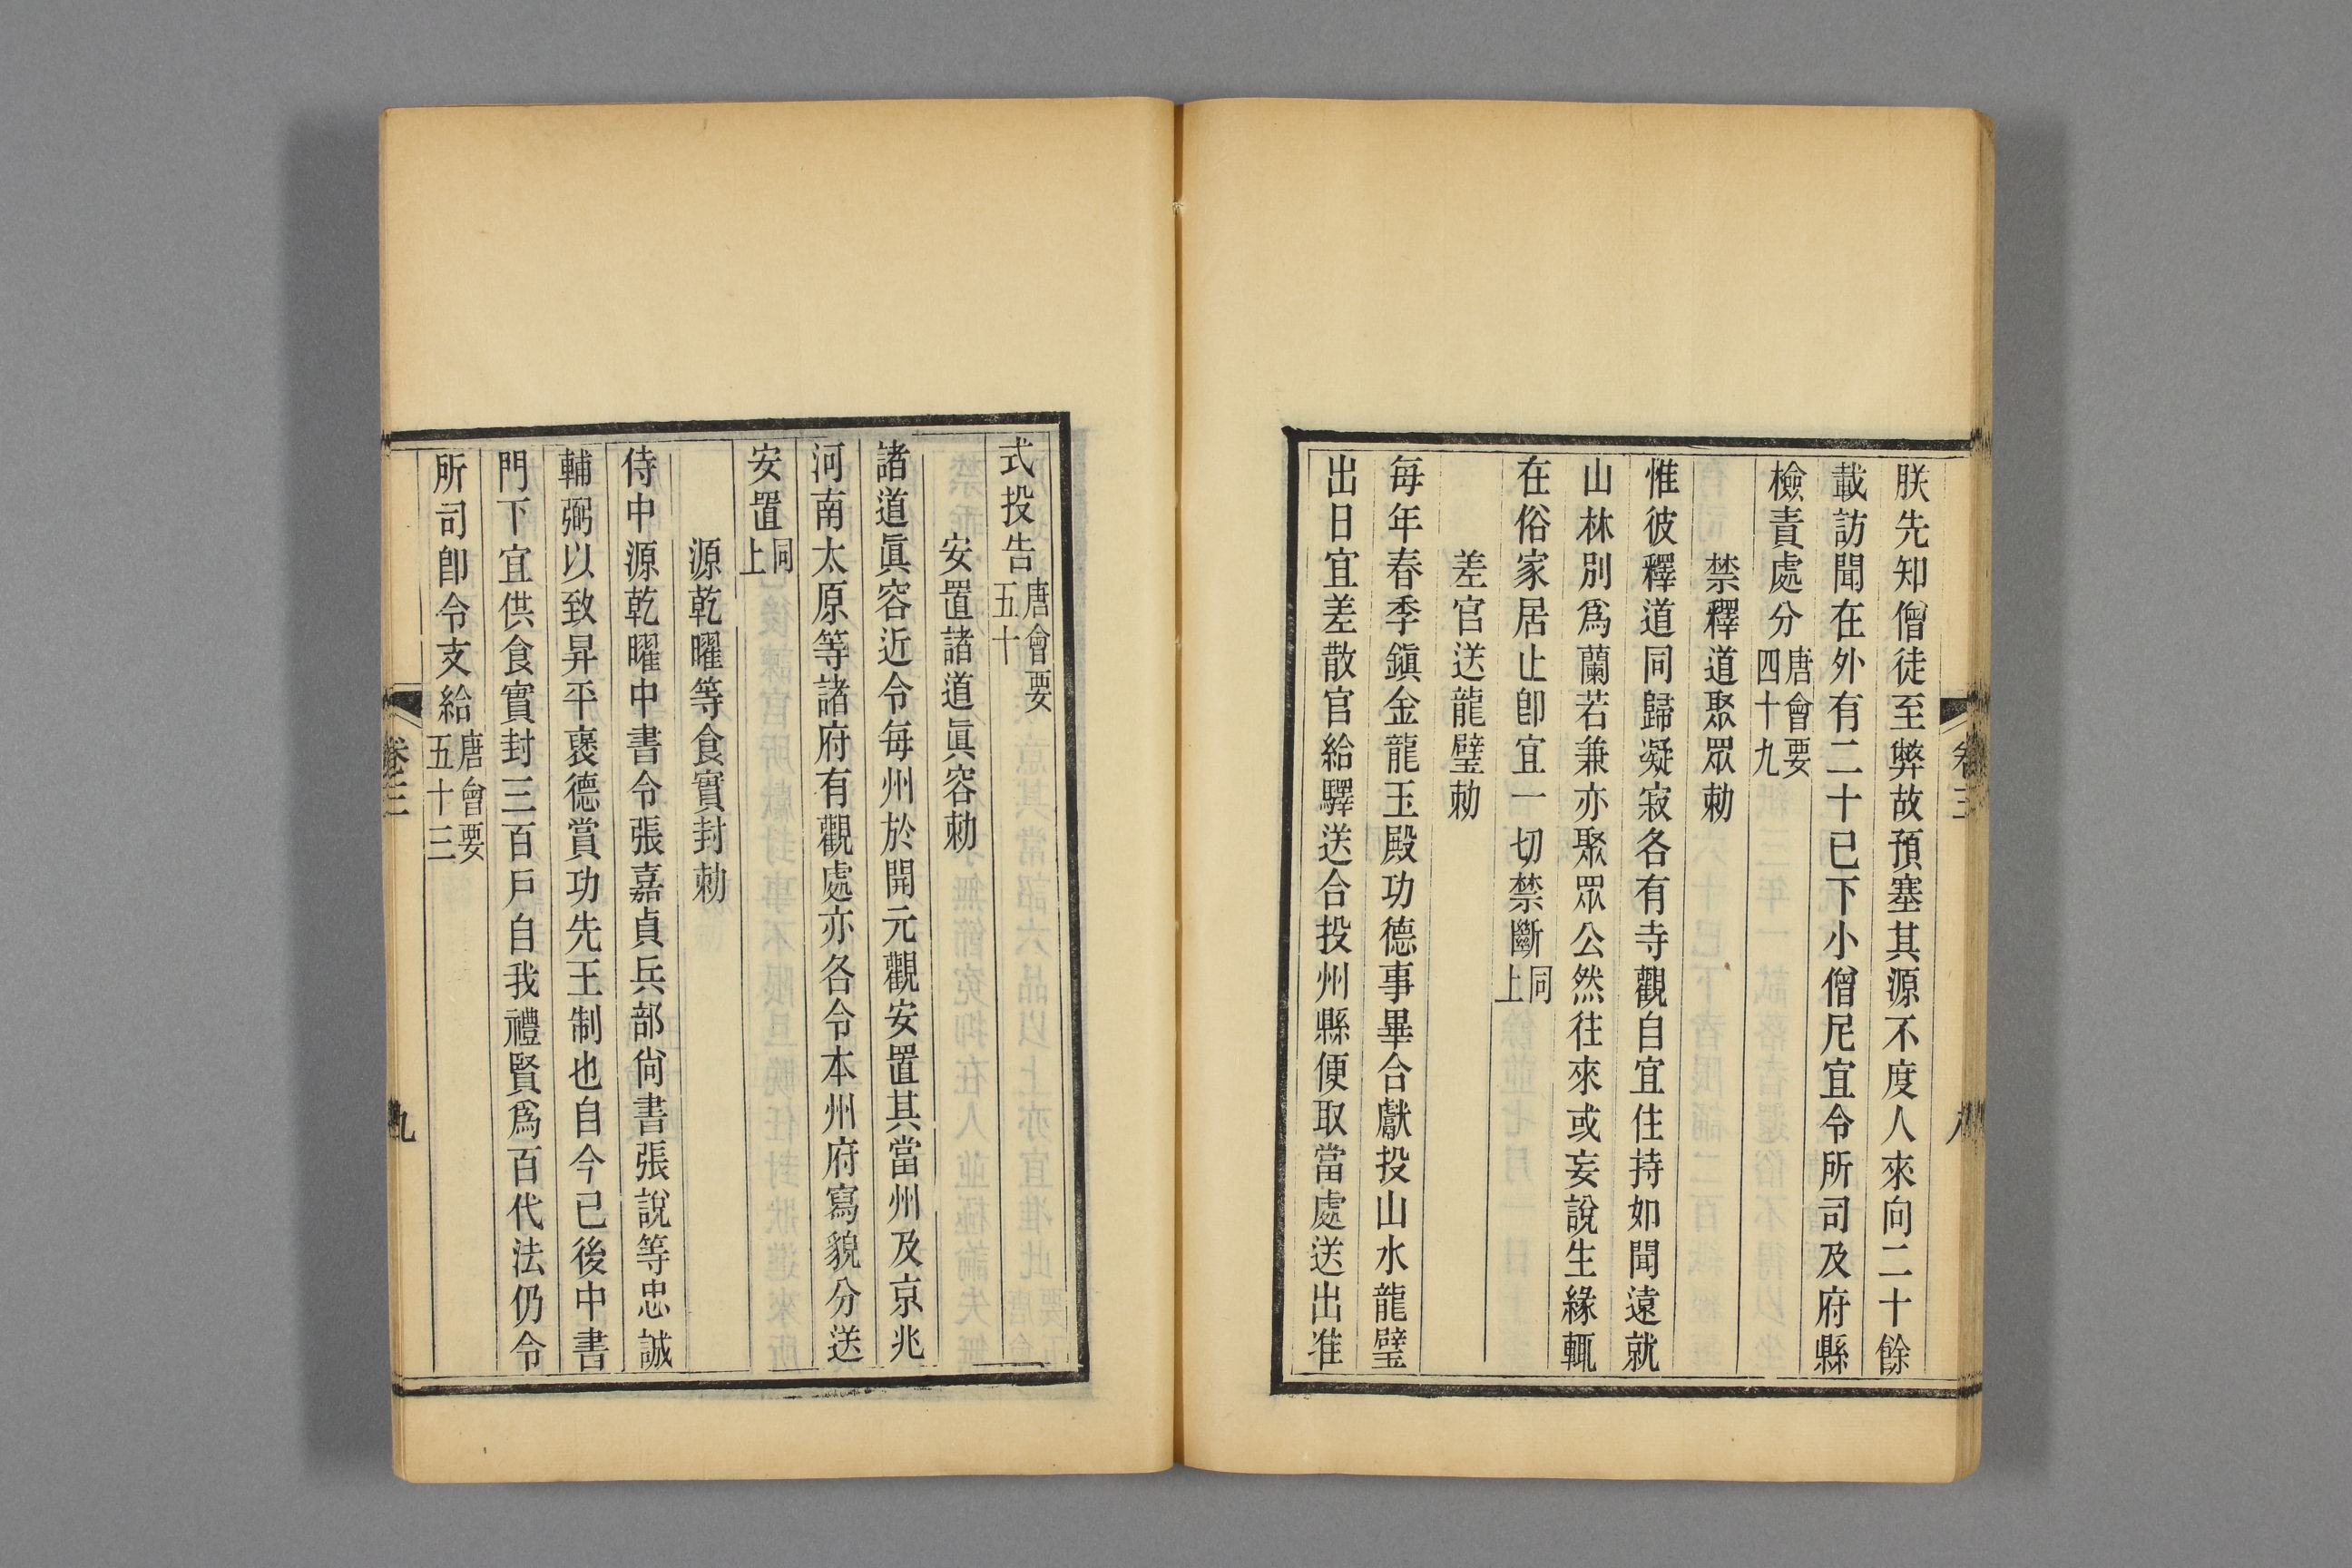 卷三
八
朕先知僧徒至弊故預塞其源不度人來向二十餘
載訪聞在外有二十已下小僧尼宜令所司及府縣
檢責處分唐會要四十九
禁釋道聚眾勅
惟彼釋道同歸凝寂各有寺觀自宜住持如聞遠就
山林別爲蘭若兼亦聚眾公然往來或妄說生緣輒
在俗家居止卽宜一切禁斷同上
差官送龍璧勅
每年春季鎭金龍玉殿功德事畢合獻投山水龍璧
出日宜差散官給驛送合投州縣便取當處送出准
式投告唐會要五十
安置諸道眞容勅
諸道眞容近令每州於開元觀安置其當州及京兆
河南太原等諸府有觀處亦各令本州府寫貌分送
安置同上
源乾曜等食實封勅
侍中源乾曜中書令張嘉貞兵部尙書張說等忠誠
輔弼以致昇平褒德賞功先王制也自今已後中書
門下宜供食實封三百戶自我禮賢爲百代法仍令
所司卽令支給唐會要五十三
卷三
九